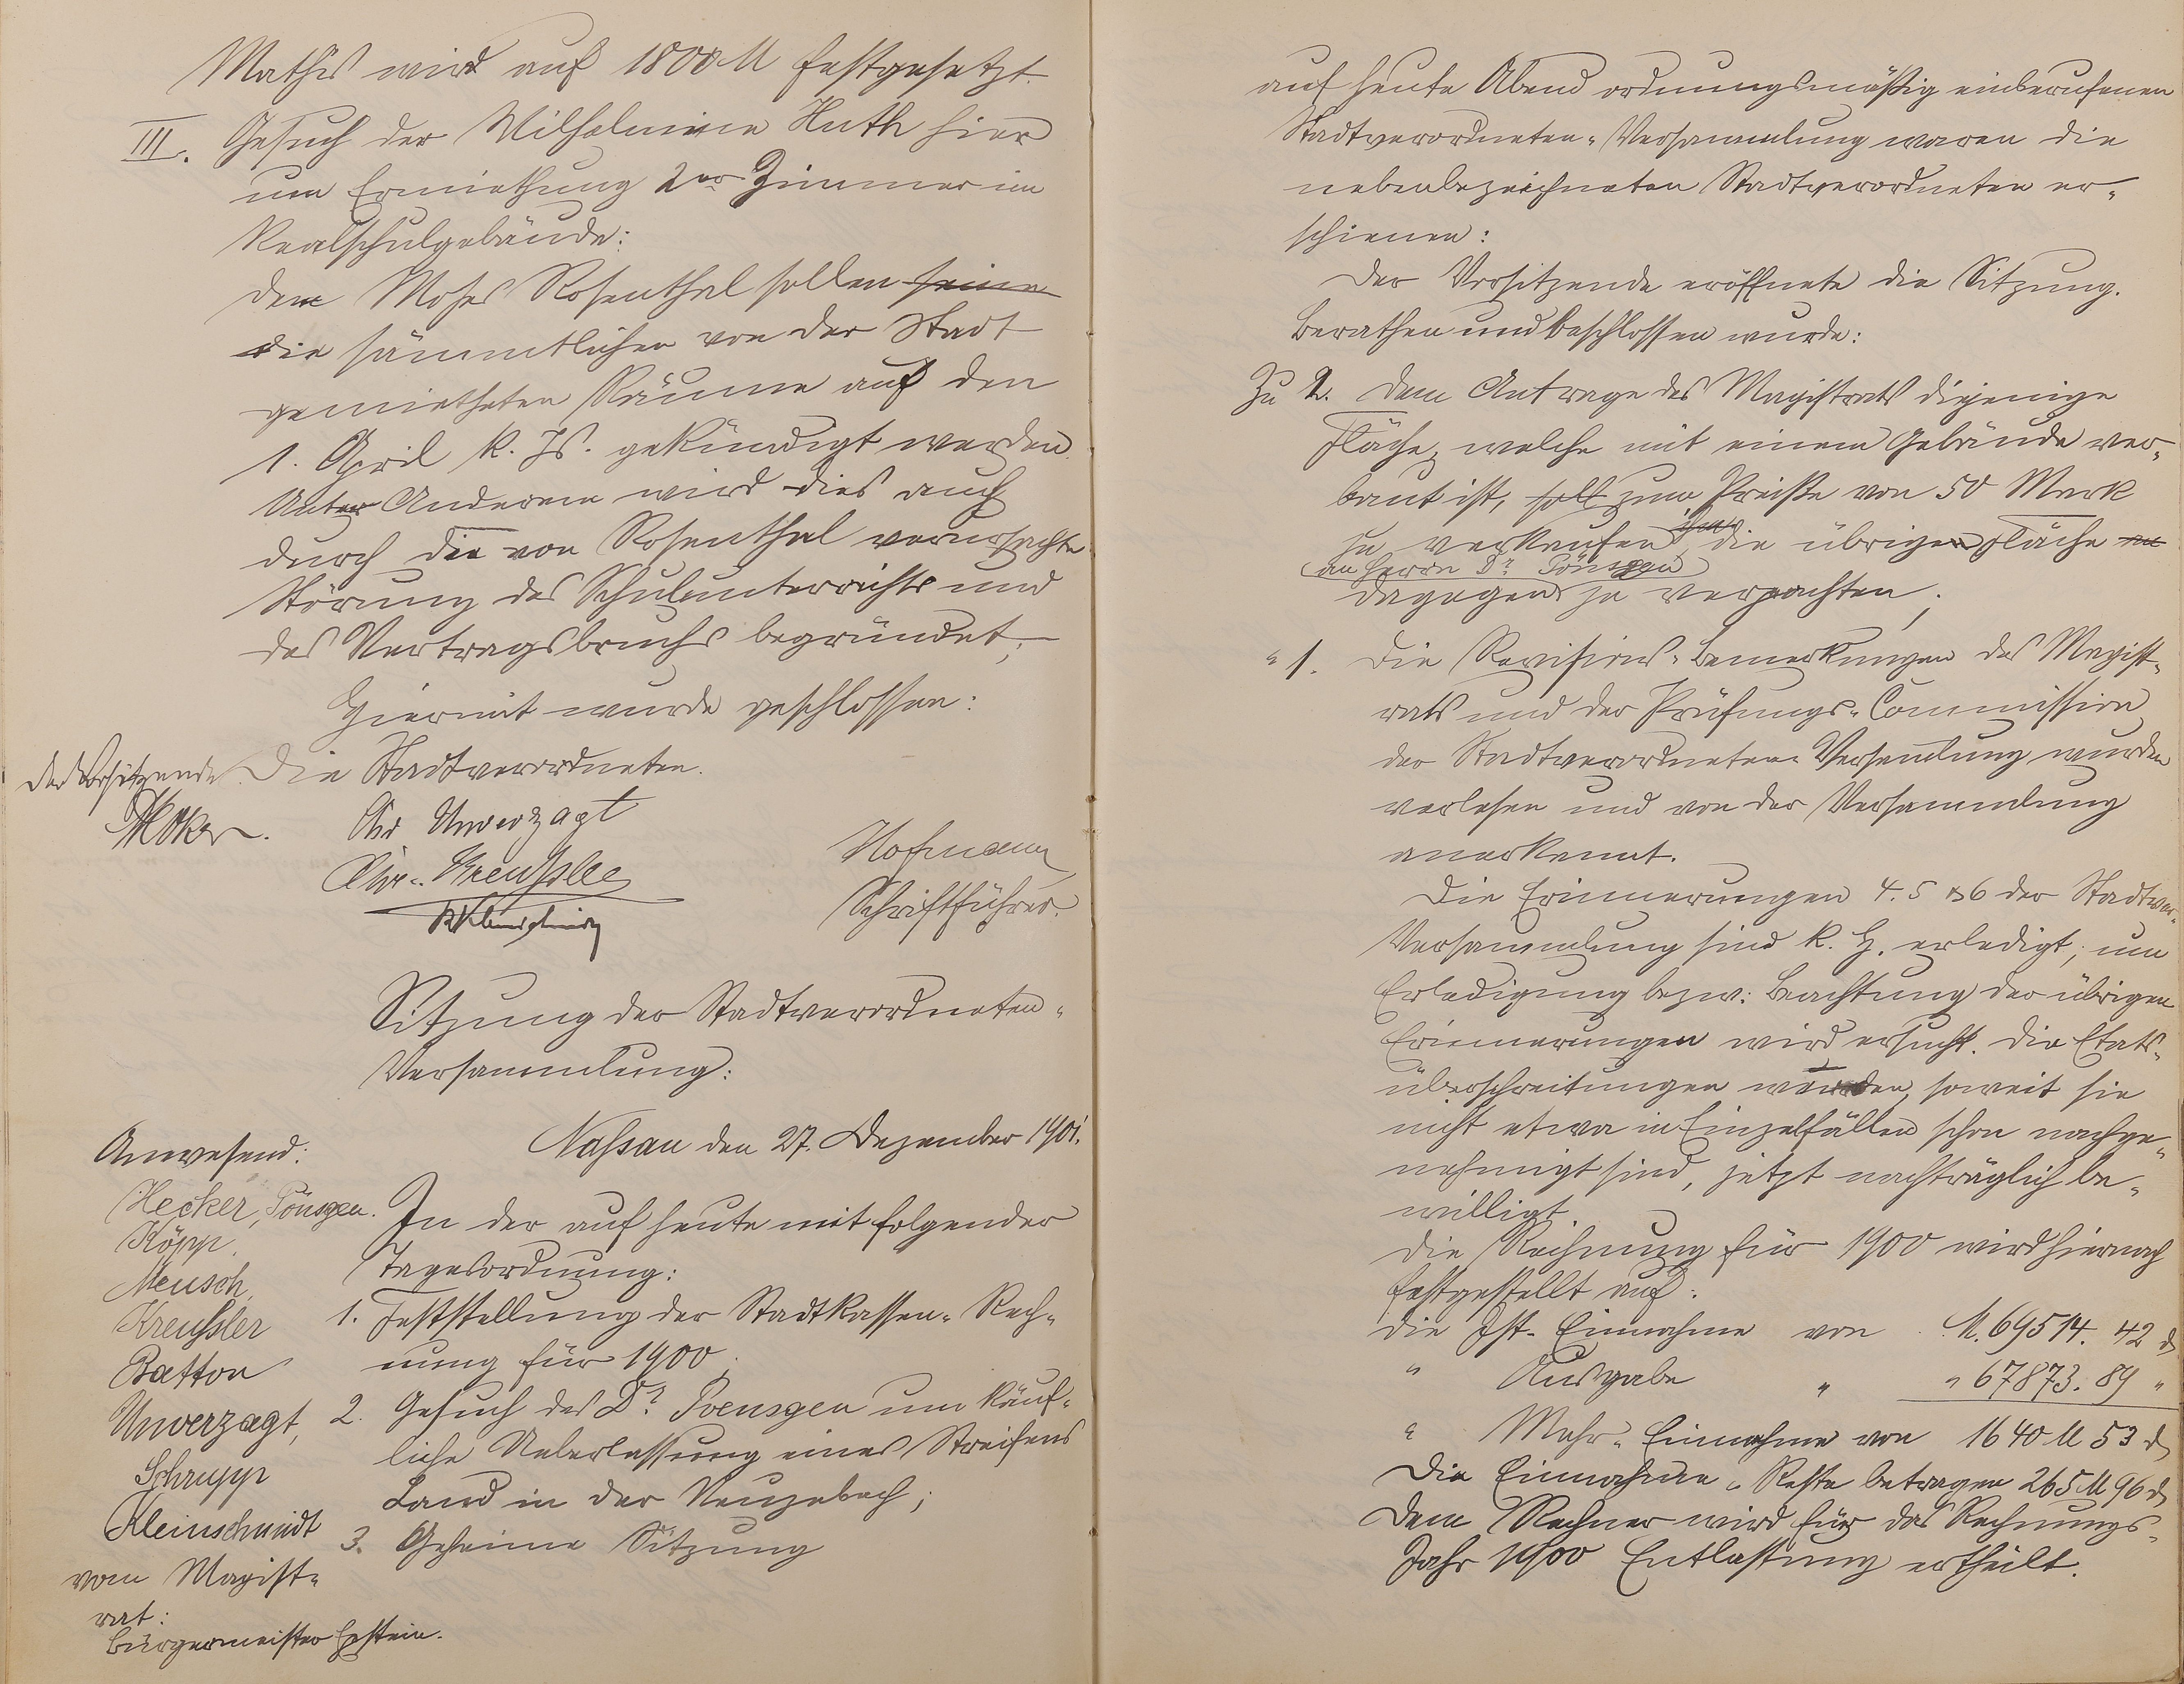 Mathis wird auf 1800 M festgesetzt.
III. Gesuch der Wilhelmine Huth hier
um Ermiethung 2er Zimmer im
Realschulgebäude:
dem Moses Rosenthal sollen seine
die sämmtlichen von der Stadt
gemietheten Räume auf den
1. April k. Js. gekündigt werden.
Unter Anderem wird dies auch
durch die von Rosenthal verursachte
Störung des Schulunterrichts und
des Vertragsbruchs begründet;
Hiermit wurde geschlossen:
Der Vorsitzende Die Stadtverordneten.
Chr Unverzagt
Hofmann
Chr. Kreußler
Schriftführer.
Kleinschmidt
Sitzung der Stadtverordneten-
Versammlung:
Nassau den 27. Dezember 1901.
Anwesend:
Hecker, Pönsgen.
Köpp,
Meusch,
Kreußler
Batton
Unverzagt,
Schrupp
Kleinschmidt
vom Magist-
rat:
Bürgermeister Epstein.
In der auf heute mit folgender
Tagesordnung:
1. Feststellung der Stadtkassen-Rech-
nung für 1900.
2. Gesuch des Dr. Poensgen um käuf-
liche Ueberlassung eines Streifens
Land in der Neuzebach;
3. Geheime Sitzung
auf heute Abend ordnungsmäßig einberufenen
Stadtverordneten-Versammlung waren die
nebenbezeichneten Stadtverordneten er-
schienen:
Der Vorsitzende eröffnete die Sitzung.
Berathen und beschlossen wurde:
Zu 2. Dem Antrage des Magistrats diejenige
Fläche, welche mit einem Gebäude ver-
baut ist, soll zum Preiße von 50 Mark
zu verkaufen, die übrigen Fläche
an Herrn Dr. Pönsgen
dagegen zu verpachten;
" 1. Die Revisions-Bemerkungen des Magist-
rats und der Prüfungs-Commission
der Stadtverordneten-Versamlung wurden
verlesen und von der Versammlung
anerkannt.
Die Erinnerungen 4. 5 & 6 der Stadtver-
Versammlung sind k. H. erledigt; um
Erledigung bezw: Beachtung der übrigen
Erinnerungen wird ersucht. Die Etats-
überschreitungen werden, soweit sie
nicht etwa in Einzelfällen schon nachge-
nehmigt sind, jetzt nachträglich be-
willigt.
Die Rechnung für 1900 wird hiernach
festgestellt auf:
die Ist-Einnahme von M. 69514. 42 d
" Ausgabe " " 67873. 89 "
" Mehr-Einnahme von 1640 M 53 d
Die Einnahme-Reste betragen 265 M 96 d
Dem Rechner wird für das Rechnungs-
Jahr 1900 Entlastung ertheilt.